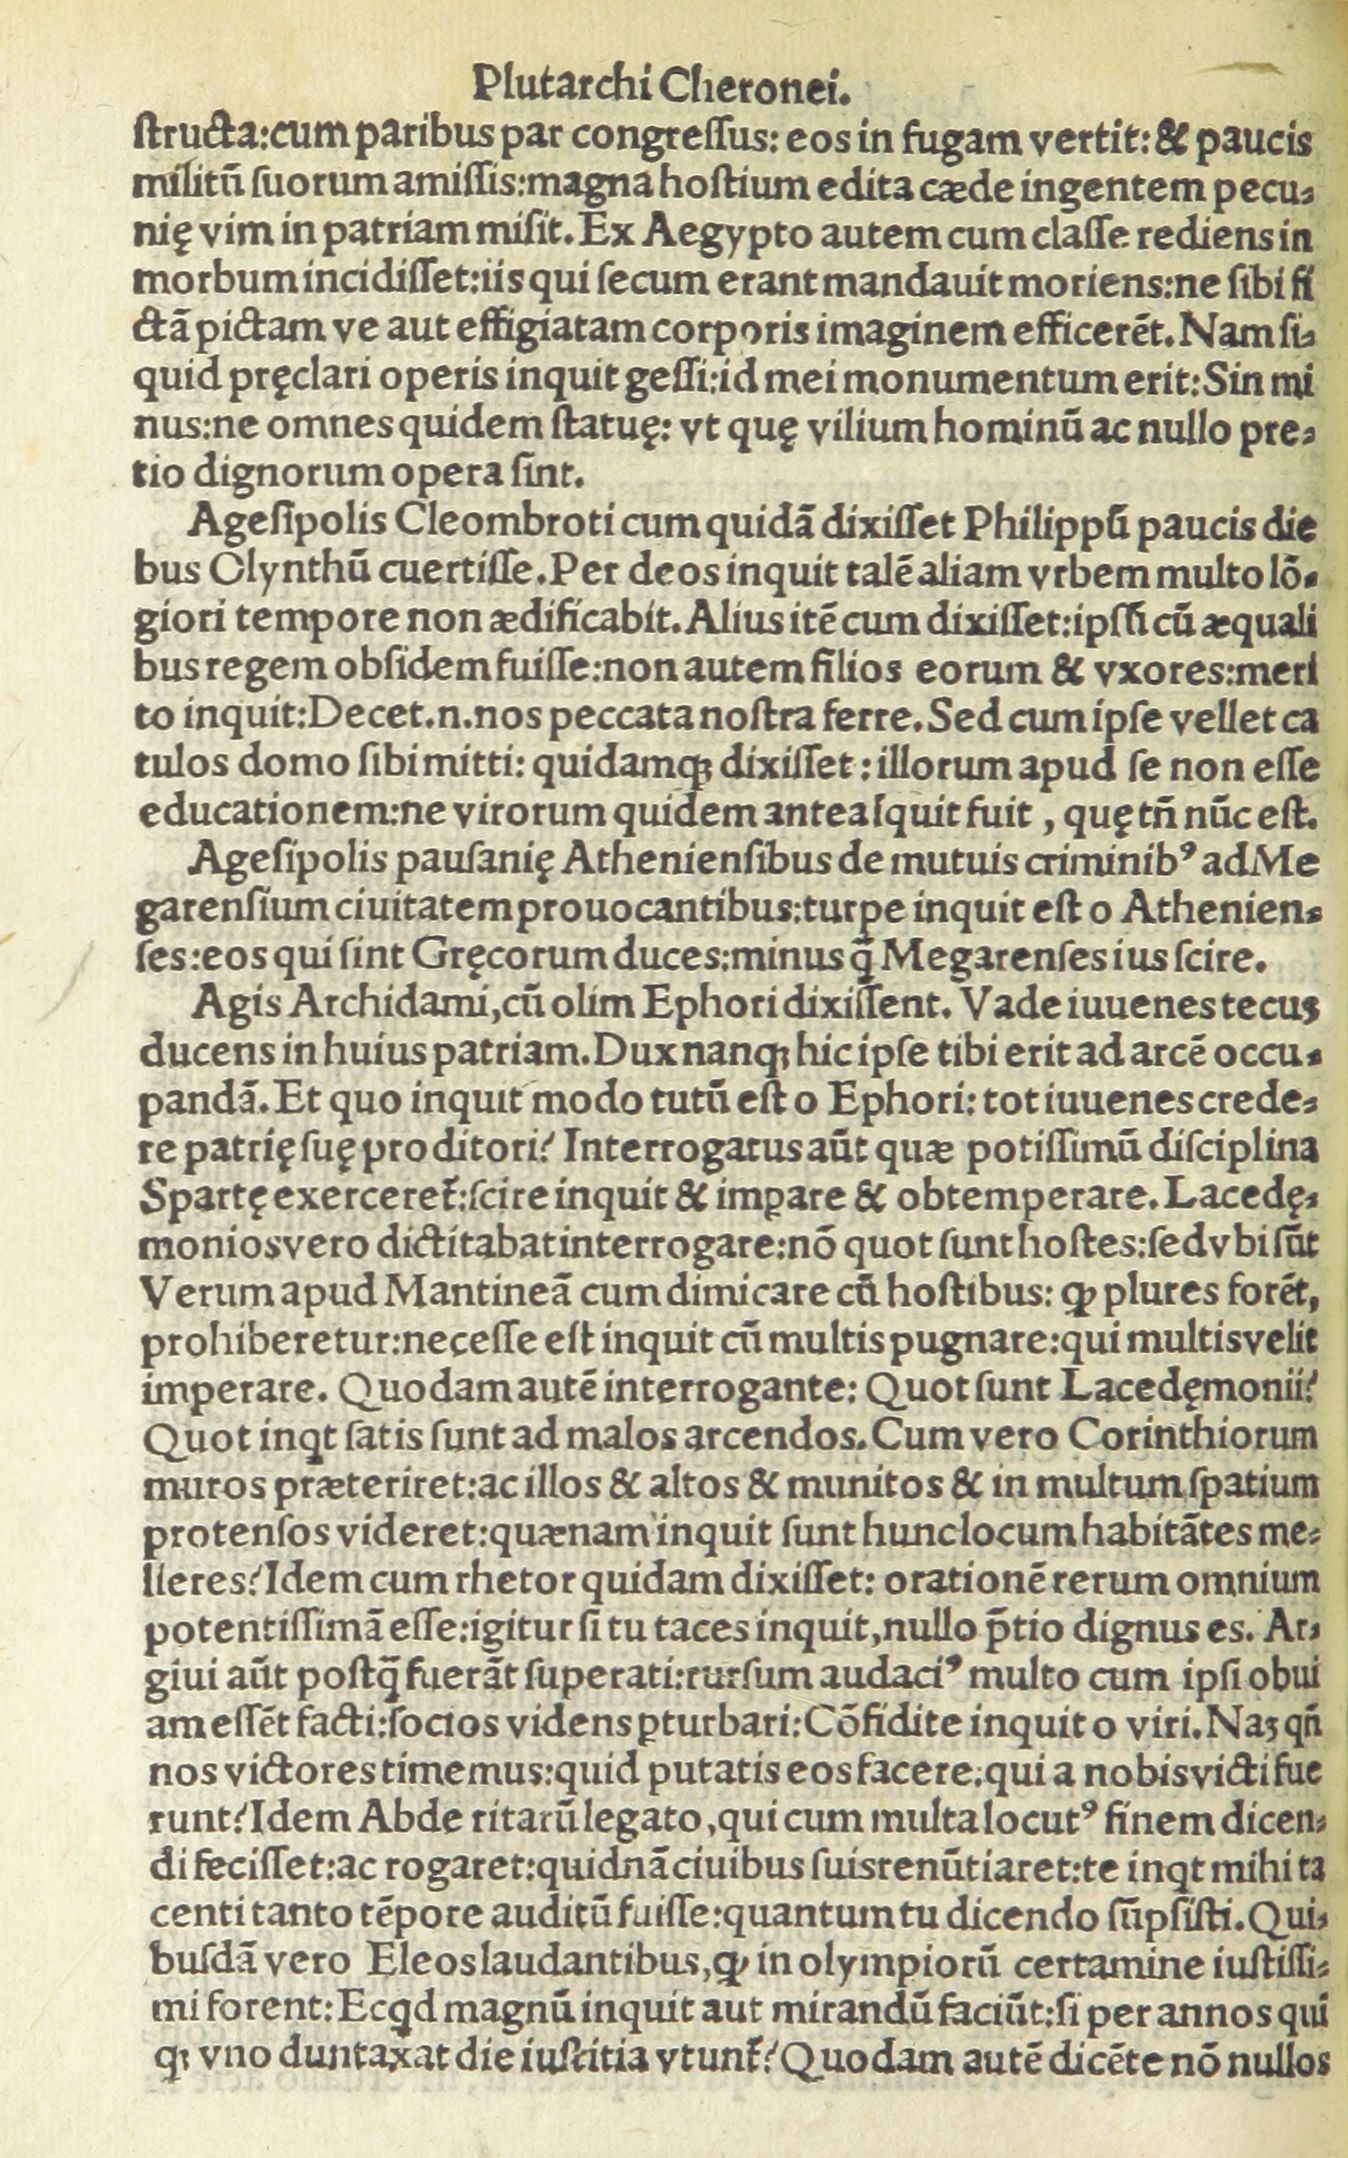 Plutarchi Cheronei.
ſtructa:cum paribus par congreſſus: eos in fugam vertit: & paucis
militū ſuorum amiſſis:magna hoſtium edita cæde ingentem pecu-
nię vim in patriam miſit. Ex Aegypto autem cum claſſe rediens in
morbum incidiſſet:iis qui ſecum erant mandauit moriens:ne ſibi fi
ctā pictam ve aut effigiatam corporis imaginem efficerēt. Nam ſi-
quid pręclari operis inquit geſſi:id mei monumentum erit:Sin mi
nus:ne omnes quidem ſtatuę: vt quę vilium hominū ac nullo pre-
tio dignorum opera ſint.
Ageſipolis Cleombroti cum quidā dixiſſet Philippū paucis die
bus Olynthū cuertiſſe. Per deos inquit talē aliam vrbem multo lō-
giori tempore non ædificabit. Alius itē cum dixiſſet:ipſū cū æquali
bus regem obſidem fuiſſe:non autem filios eorum & vxores:meri
to inquit:Decet.n.nos peccata noſtra ferre. Sed cum ipſe vellet ca
tulos domo ſibi mitti: quidamqꝫ dixiſſet: illorum apud ſe non eſſe
educationem:ne virorum quidem antea ſquit fuit, quę tñ nūc eſt.
Ageſipolis pauſanię Athenienſibus de mutuis criminibꝰ ad Me
garenſium ciuitatem prouocantibus:turpe inquit eſt o Athenien-
ſes:eos qui ſint Gręcorum duces:minus q̄ Megarenſes ius ſcire.
Agis Archidami, cū olim Ephori dixiſſent. Vade iuuenes tecuꝫ
ducens in huius patriam. Dux nanqꝫ hic ipſe tibi erit ad arcē occu-
pandā. Et quo inquit modo tutū eſt o Ephori: tot iuuenes crede-
re patrię ſuę proditori? Interrogatus aūt quæ potiſſimū diſciplina
Spartę exerceret̄:ſcire inquit & impare & obtemperare. Lacedę-
monios vero dictitabat interrogare:nō quot ſunt hoſtes:ſed vbi ſūt
Verum apud Mantineā cum dimicare cū hoſtibus: ꝙ plures forēt,
prohiberetur:neceſſe eſt inquit cū multis pugnare:qui multis velit
imperare. Quodam autē interrogante: Quot ſunt Lacedęmonii?
Quot inqt ſatis ſunt ad malos arcendos. Cum vero Corinthiorum
muros præteriret:ac illos & altos & munitos & in multum ſpatium
protenſos videret:quænam inquit ſunt hunc locum habitātes me-
lieres? Idem cum rhetor quidam dixiſſet: orationē rerum omnium
potentiſſimā eſſe:igitur ſi tu taces inquit, nullo p̄tio dignus es. Ar-
giui aūt poſtq̄ fuerāt ſuperati:rurſum audaciꝰ multo cum ipſi obui
am eſſēt facti:ſocios videns ꝑturbari:Cōfidite inquit o viri. Naꝫ qn̄
nos victores timemus:quid putatis eos facere:qui a nobis victi fue
runt? Idem Abde ritarū legato, qui cum multa locutꝰ finem dicen-
di feciſſet:ac rogaret:quidnā ciuibus ſuis renūtiaret:te inqt mihi ta
centi tanto tēpore auditū fuiſſe:quantum tu dicendo ſūpſiſti. Qui-
buſdā vero Eleos laudantibus, ꝙ in olympiorū certamine iuſtiſſi-
mi forent: Ecqd magnū inquit aut mirandū faciūt:ſi per annos quī
qꝫ vno duntaxat die iuſtitia vtunt̄? Quodam autē dicēte nō nullos